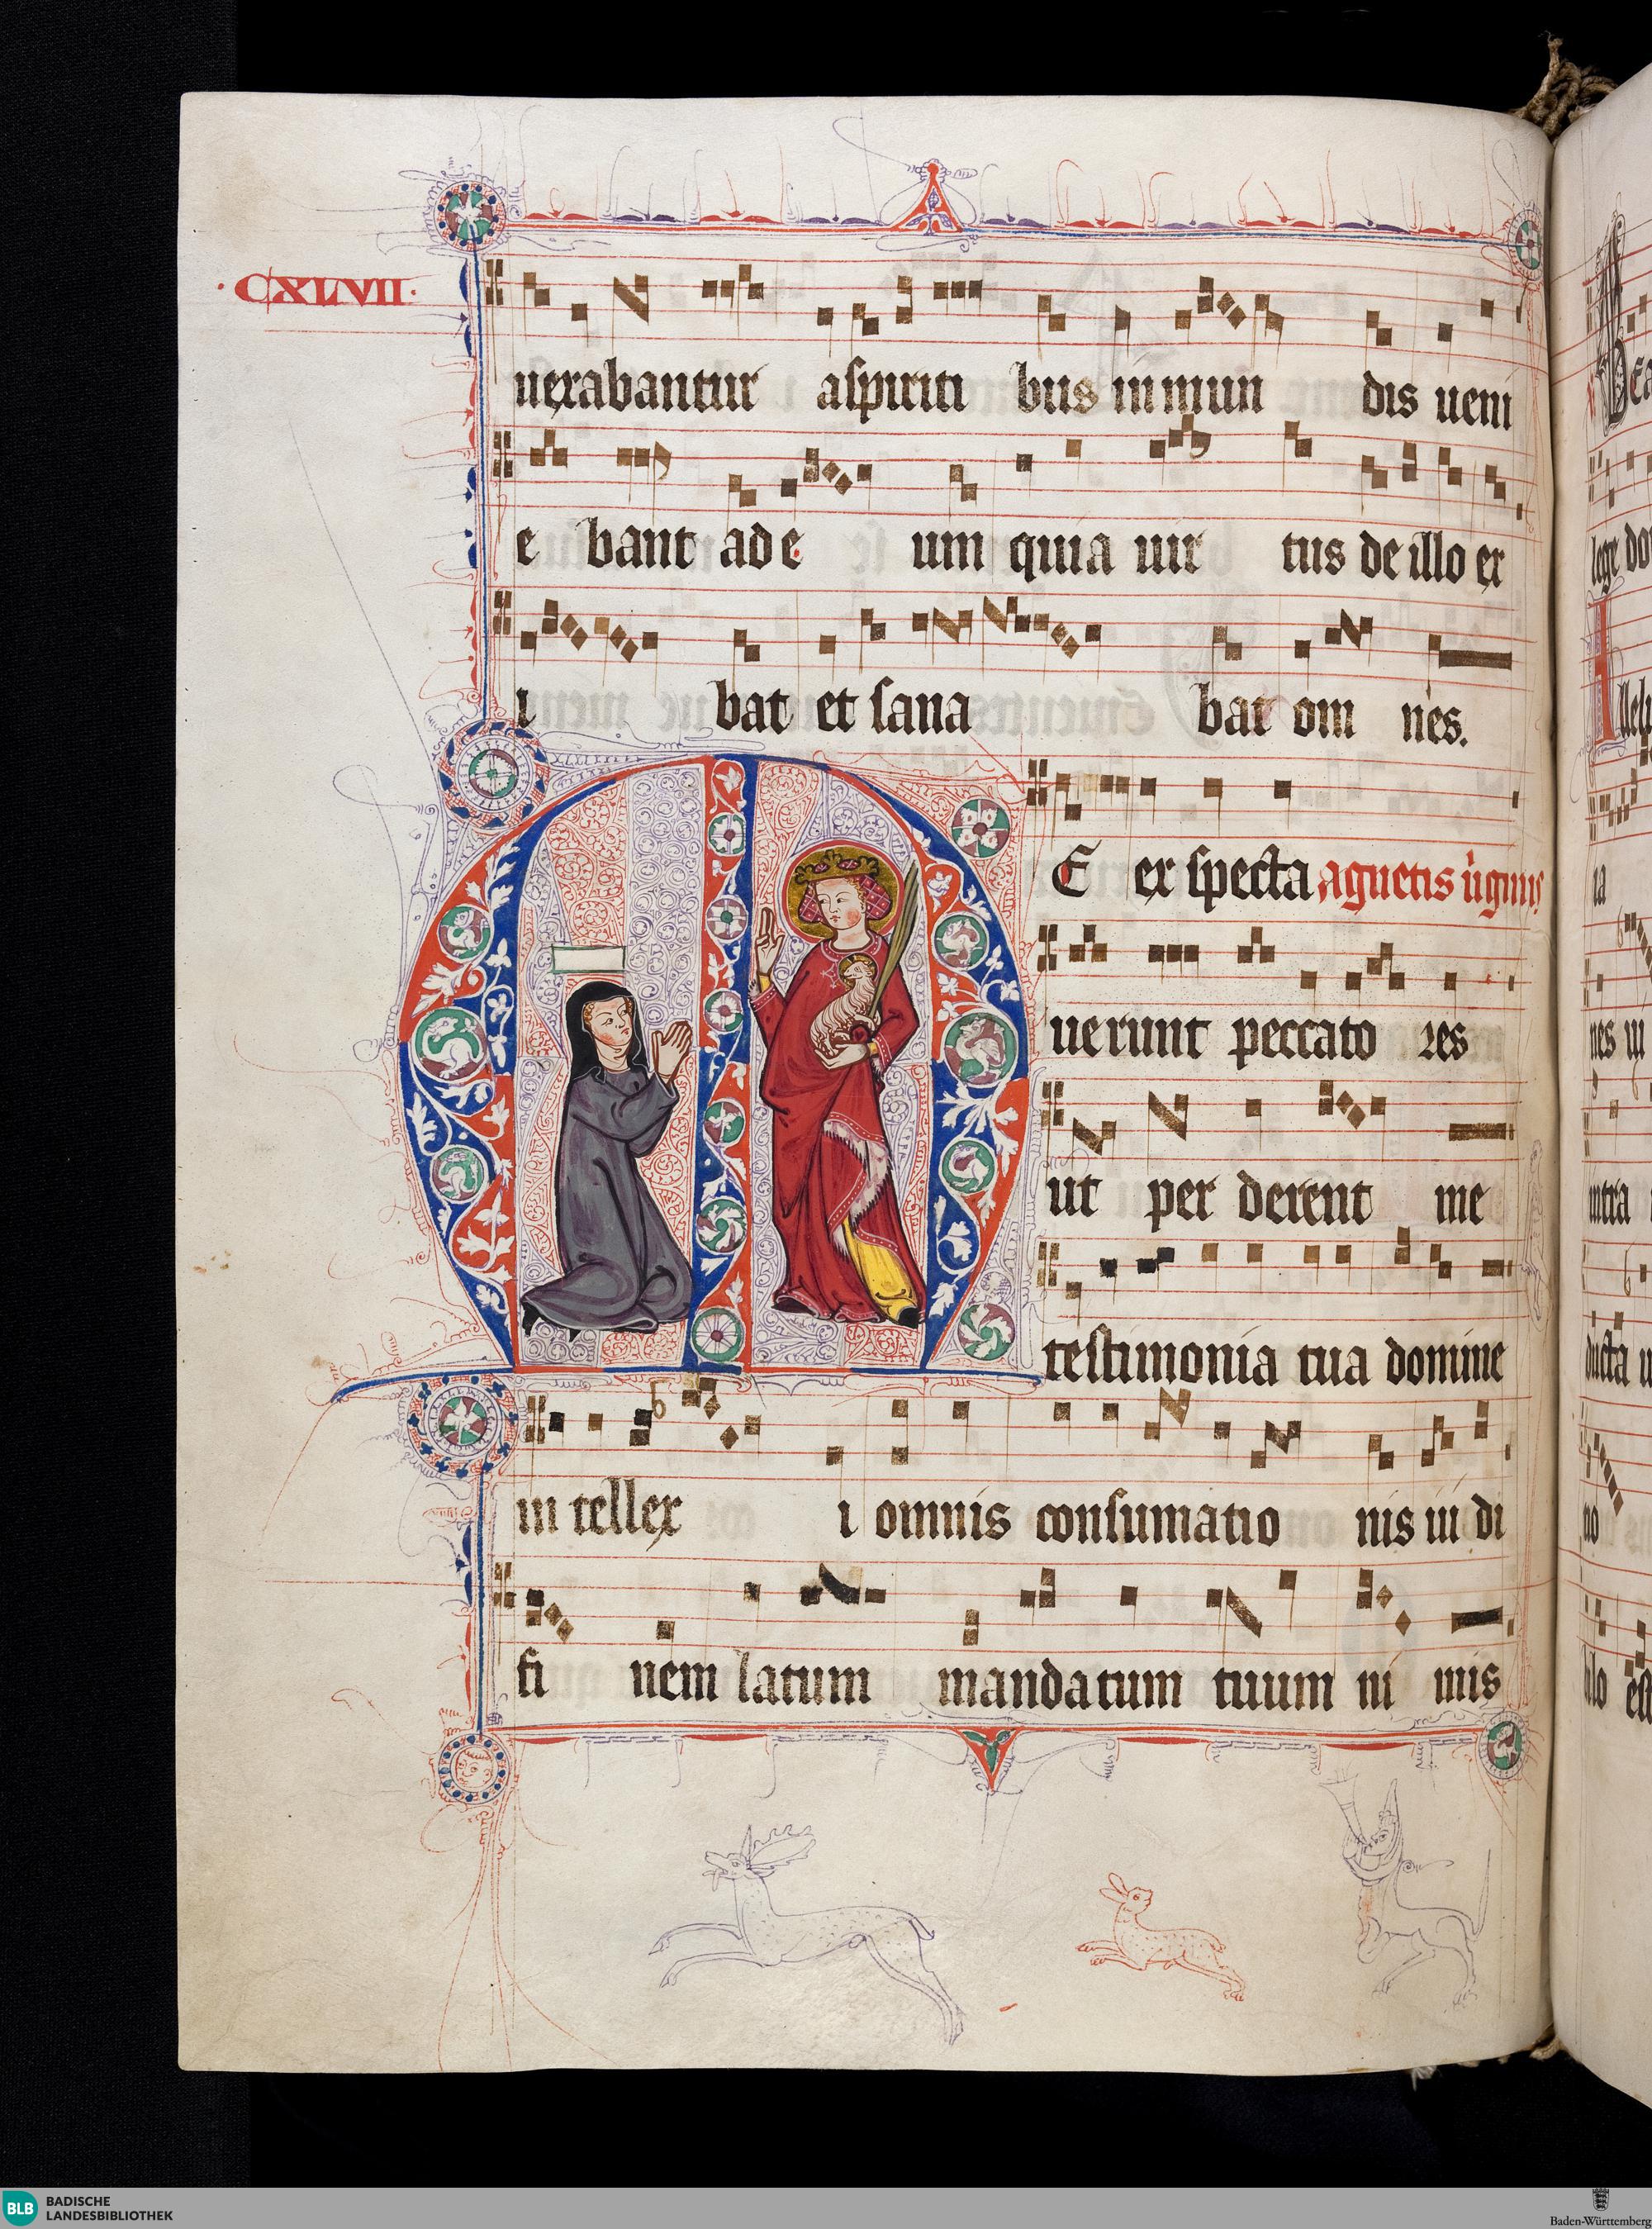 ·CXLVII·
uexabantur aspiriti bus inmun dis ueni
e bant ad e um quia uir tus de illo ex
i bat et sana bat om nes.
M E ex specta agnetis uiginis
uerunt peccato res
ut per derent me
testimonia tua domine
in tellex i omnis consumatio nis ui di
fi nem latum mandatum tuum ni mis
lege do
ducta u
BLB BADISCHE
LANDESBIBLIOTHEK
Baden-Württemberg